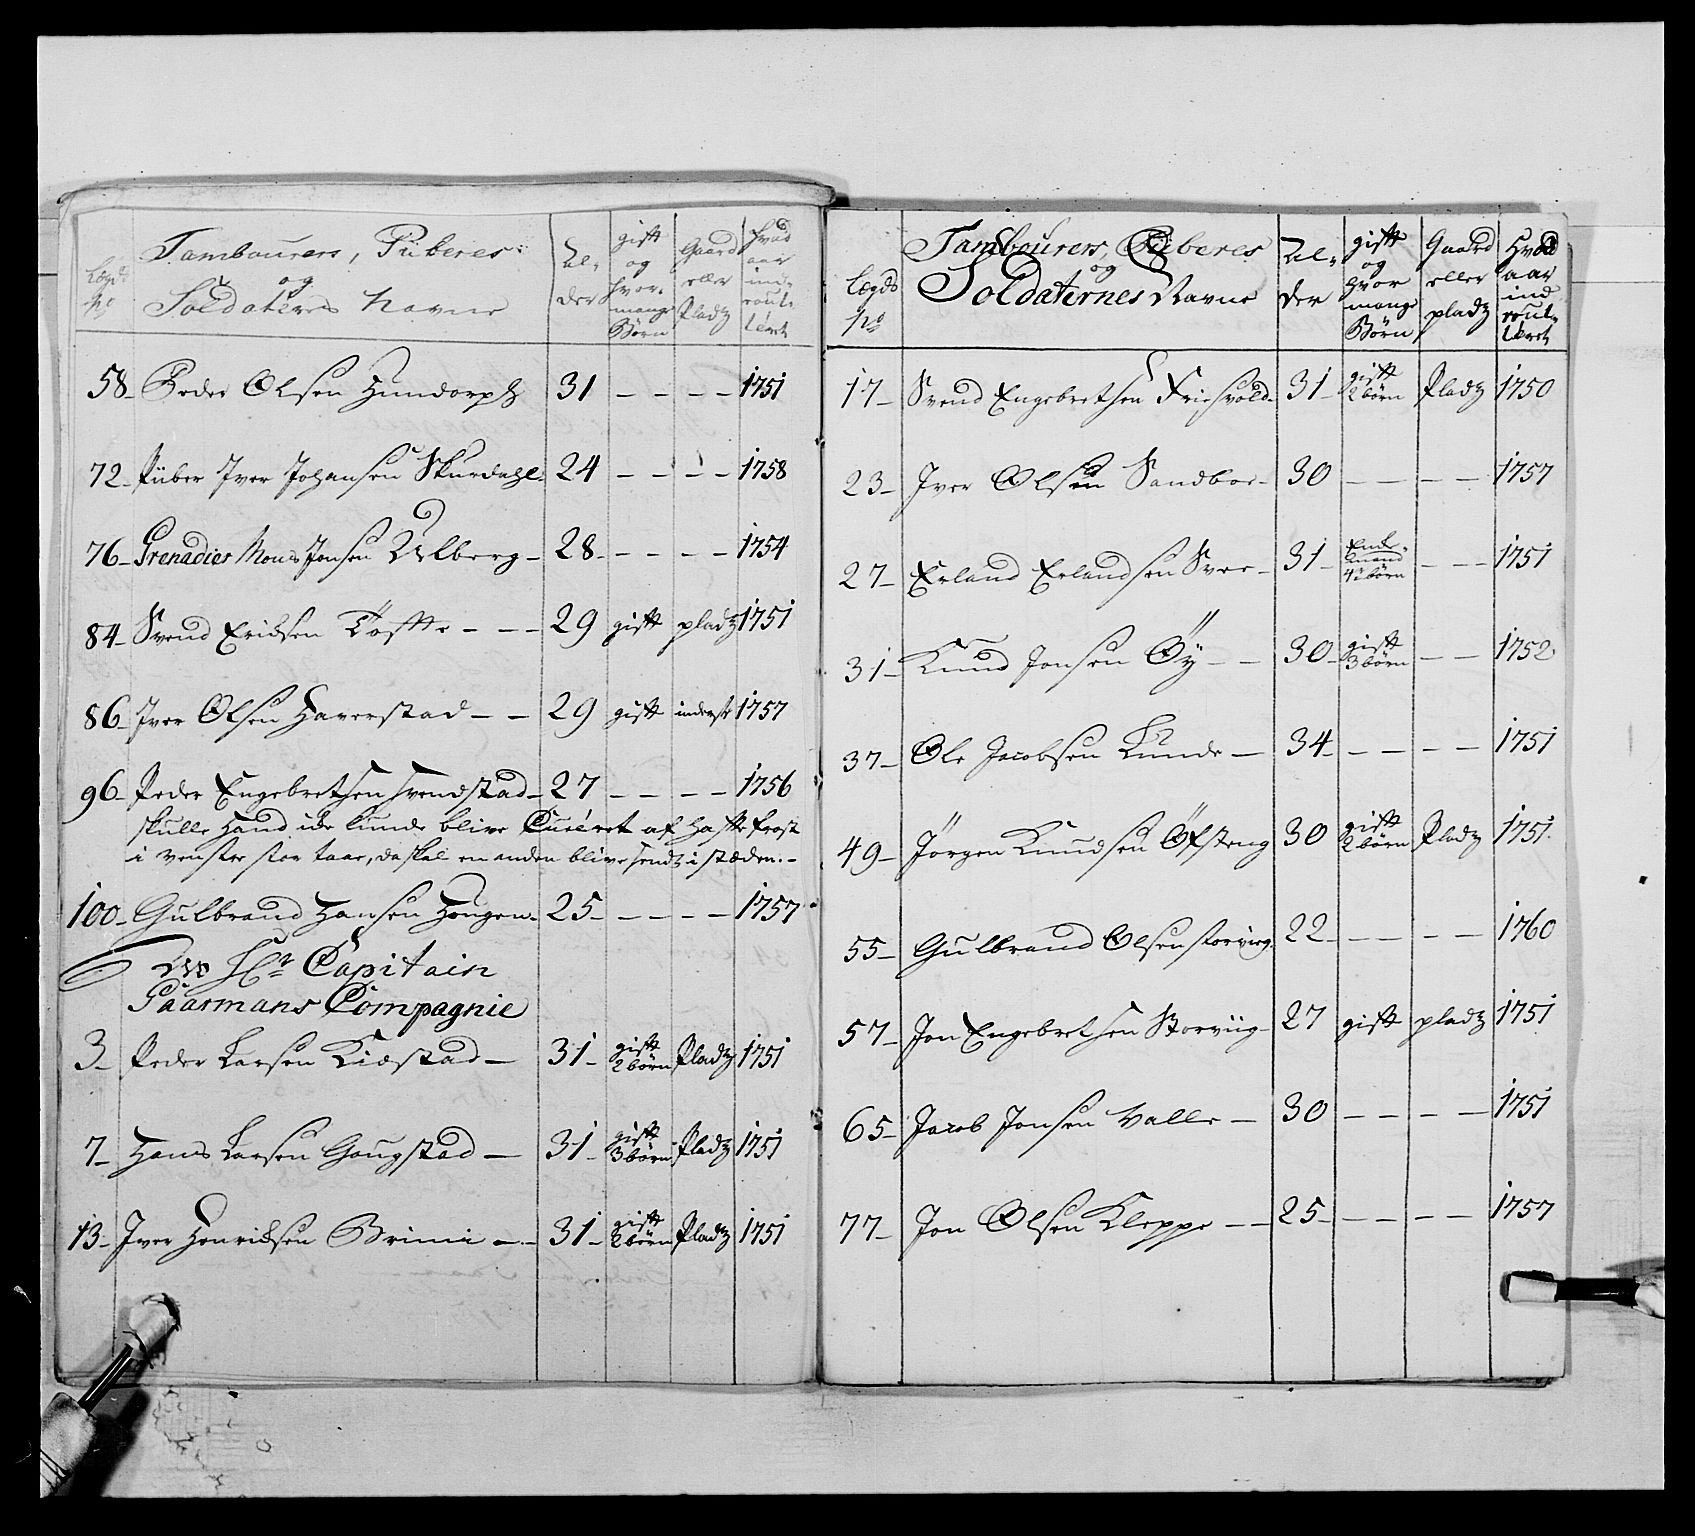 Lægds No
Tambourers, Piiberes
og
Soldaternes Navne
Al-
der
gift
og
hvor-
mange
Börn
Gaard
eller
Pladz
Hvad
aar
ind-
roul-
leret
58 Peder Olsen Hundorph 31 — — — — 1751
72 Piiber Iver Johansen Skurdahl 24 — — — — 1758
76 Grenadier Mons Jonsen Ulberg 28 — — — — 1754
84 Svend Erichsen Töffte — — 29 gift pladz 1751
86 Iver Olsen Haverstad — — 29 gift inderste 1757
96 Peder Engebrethsen Svendstad 27 — — — — 1756
skulle hand icke kunde blive Cureret af haffte frost
i venster stor taae, da skal en anden blive sendt i stæden. —
100 Gulbrand Hansen Haugen 25 — — — — 1757
Hr Capitain
Paarmans Compagnie
3 Peder Larsen Kiæstad — 31 gift 2 börn Pladz 1751
7 Hans Larsen Gaugstad — 31 gift 3 börn Pladz 1751
13 Iver Henrichsen Brimi — 31 gift 2 börn Pladz 1751
Lægds No
Tambourers, Piiberes
og
Soldaternes Navne
Al-
der
gift
og
hvor
mange
Börn
Gaard
eller
pladz
Hvad
aar
ind
roul-
leret
17 Svend Engebrethsen Friisvold 31 gift 2 börn Pladz 1750
23 Iver Olsen Sandboe 30 — — — — 1757
27 Erland Erlandsen Svee 31 Enke-mand 4 börn — — 1751
31 Knud Jonsen Öy — — 30 gift 3 börn — — 1752
37 Ole Jacobsen Lunde — 34 — — — — 1751
49 Jörgen Knudsen Öfsteng 30 gift 2 börn Pladz 1751
55 Gulbrand Olsen Storviig 22 — — — — 1760
57 Jon Engebrethsen Storviig 27 gift pladz 1751
65 Jacob Jonsen Valle — 30 — — — — 1751
77 Jon Olsen Kleppe — — 25 — — — — 1757